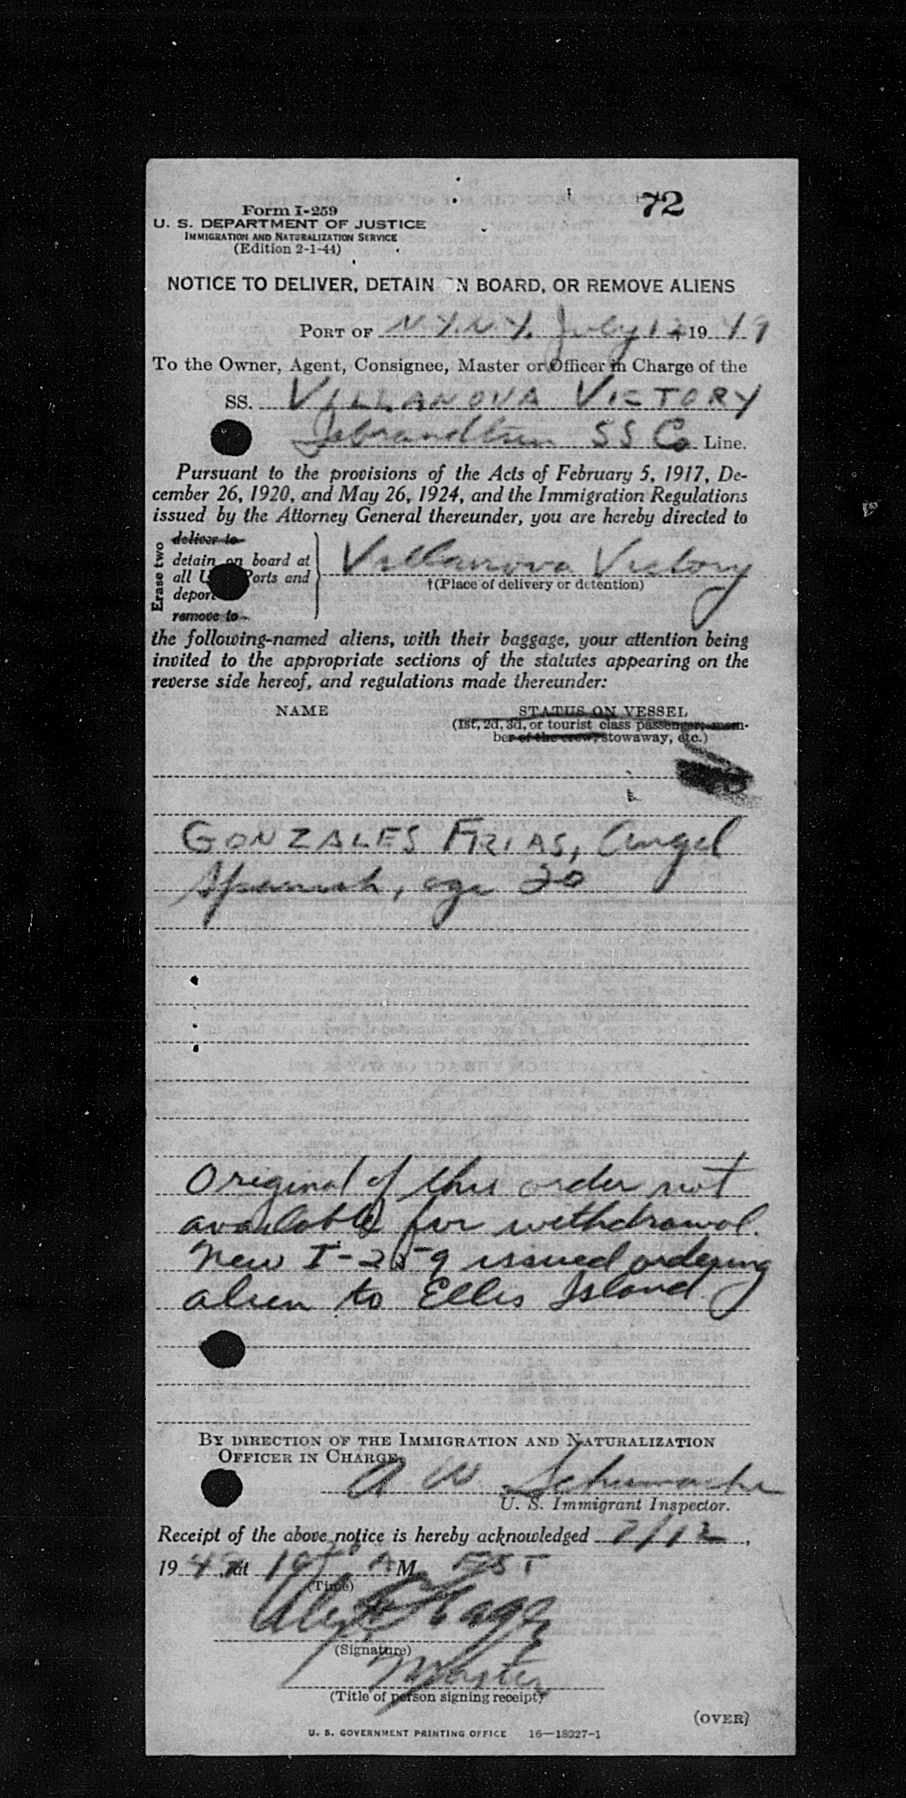 72
Form I-259
U. S. DEPARTMENT OF JUSTICE
IMMIGRATION AND NATURALIZATION SERVICE
(Edition 2-1-44)
NOTICE TO DELIVER, DETAIN ON BOARD, OR REMOVE ALIENS
PORT OF N.Y.N.Y. July 12, 1949
To the Owner, Agent, Consignee, Master or Officer in Charge of the
SS. VILLANOVA VICTORY
SS Co Line.
Pursuant to the provisions of the Acts of February 5, 1917, De-
cember 26, 1920, and May 26, 1924, and the Immigration Regulations
issued by the Attorney General thereunder, you are hereby directed to
Erase two
deliver to
detain on board at
all U Ports and
deport
remove to
Villanova Victory
†(Place of delivery or detention)
the following-named aliens, with their baggage, your attention being
invited to the appropriate sections of the statutes appearing on the
reverse side hereof, and regulations made thereunder:
NAME STATUS ON VESSEL
(1st, 2d, 3d, or tourist class passenger, mem-
ber of the crew, stowaway, etc.)
GONZALES FRIAS, Angel
Spanish, age 20
Original of this order not
available for withdrawal.
New I-259 issued ordering
alien to Ellis Island.
BY DIRECTION OF THE IMMIGRATION AND NATURALIZATION
OFFICER IN CHARGE:
A W Schumacher
U. S. Immigrant Inspector.
Receipt of the above notice is hereby acknowledged 7/12,
1949, at A M. EST
(Time)
(Signature)
Master
(Title of person signing receipt)
(OVER)
U. S. GOVERNMENT PRINTING OFFICE 16—18927-1